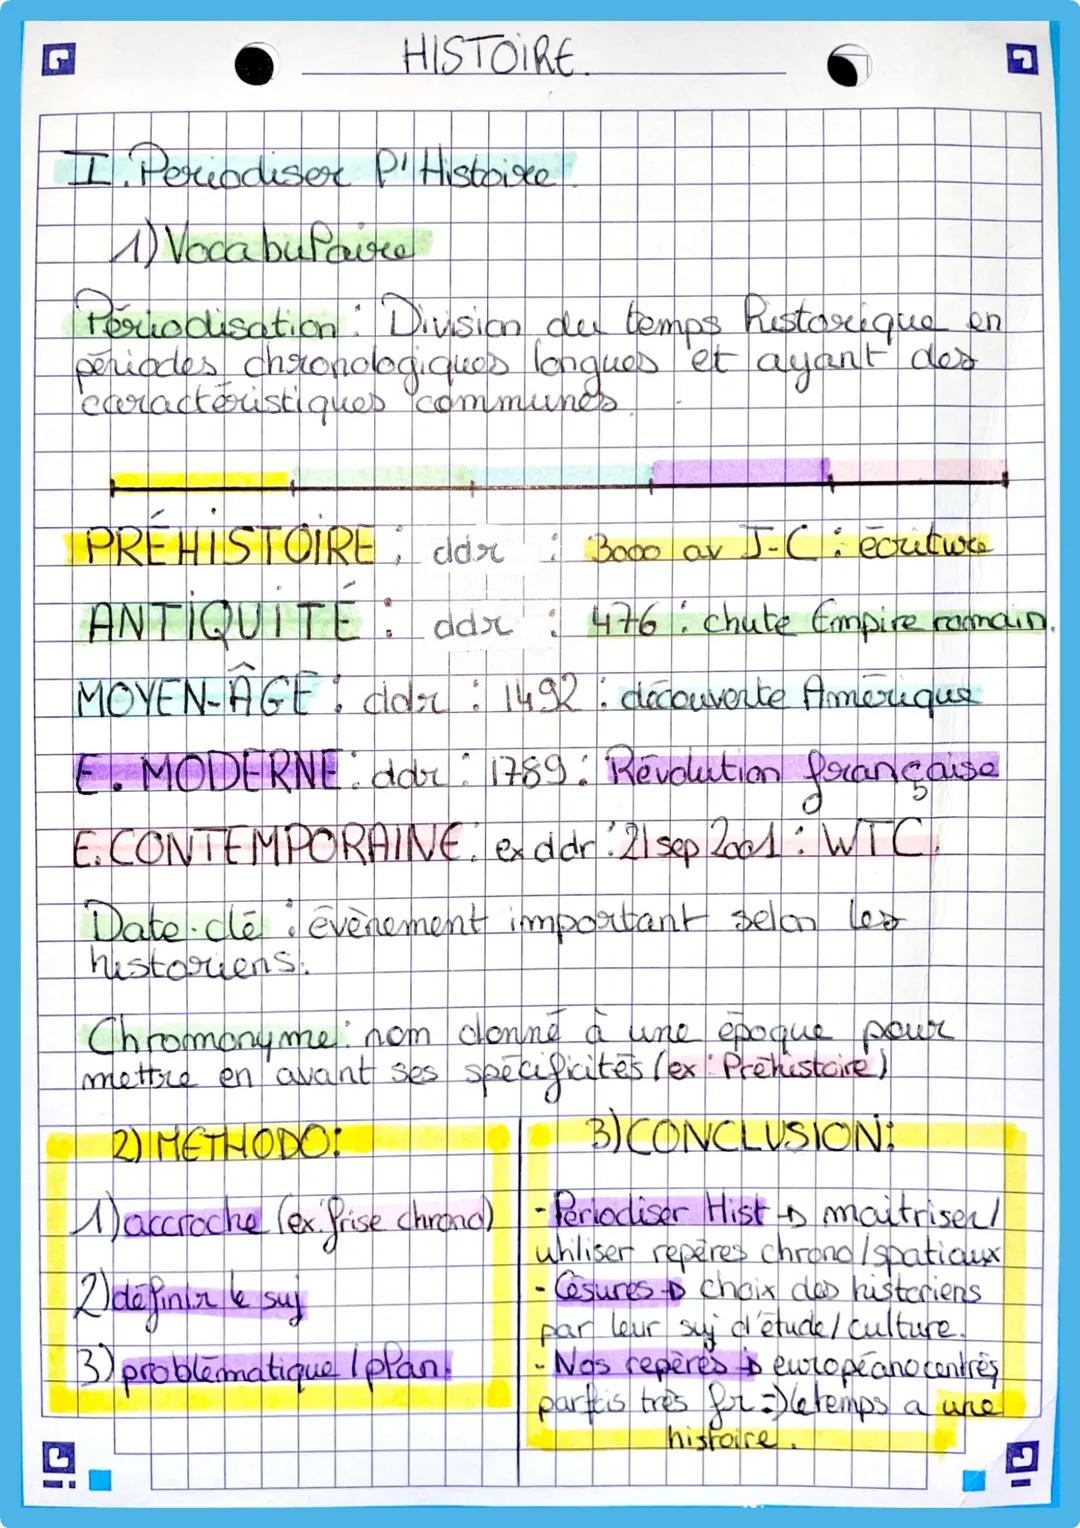 HISTOIRE.
I. Periodiser l'Histoire.
1) Vocabulaire
Périodisation : Division du temps historique en
périodes chronologiques longues et ayant des
caractéristiques communes.
PRÉHISTOIRE : ddr : 3000 av J-C : écriture
ANTIQUITÉ : ddr : 476 : chute Empire romain.
MOYEN-ÂGE : ddr : 1492 : découverte Amérique
E. MODERNE : ddr : 1789 : Révolution française
E. CONTEMPORAINE : ex ddr : 21 sep 2001 : WTC.
Date-clé : évènement important selon les
historiens.
Chromonyme : nom donné à une époque pour
mettre en avant ses spécificités (ex : Préhistoire)
2) METHODO :
1) accroche (ex : frise chrono)
2) définir le suj
3) problématique / plan.
3) CONCLUSION :
- Périodiser Hist → maitriser/
utiliser repères chrono/spatiaux
- Césures → choix des historiens
par leur suj d'étude/culture.
- Nos repères → européanocentrés
parfois très fr => le temps a une
histoire.